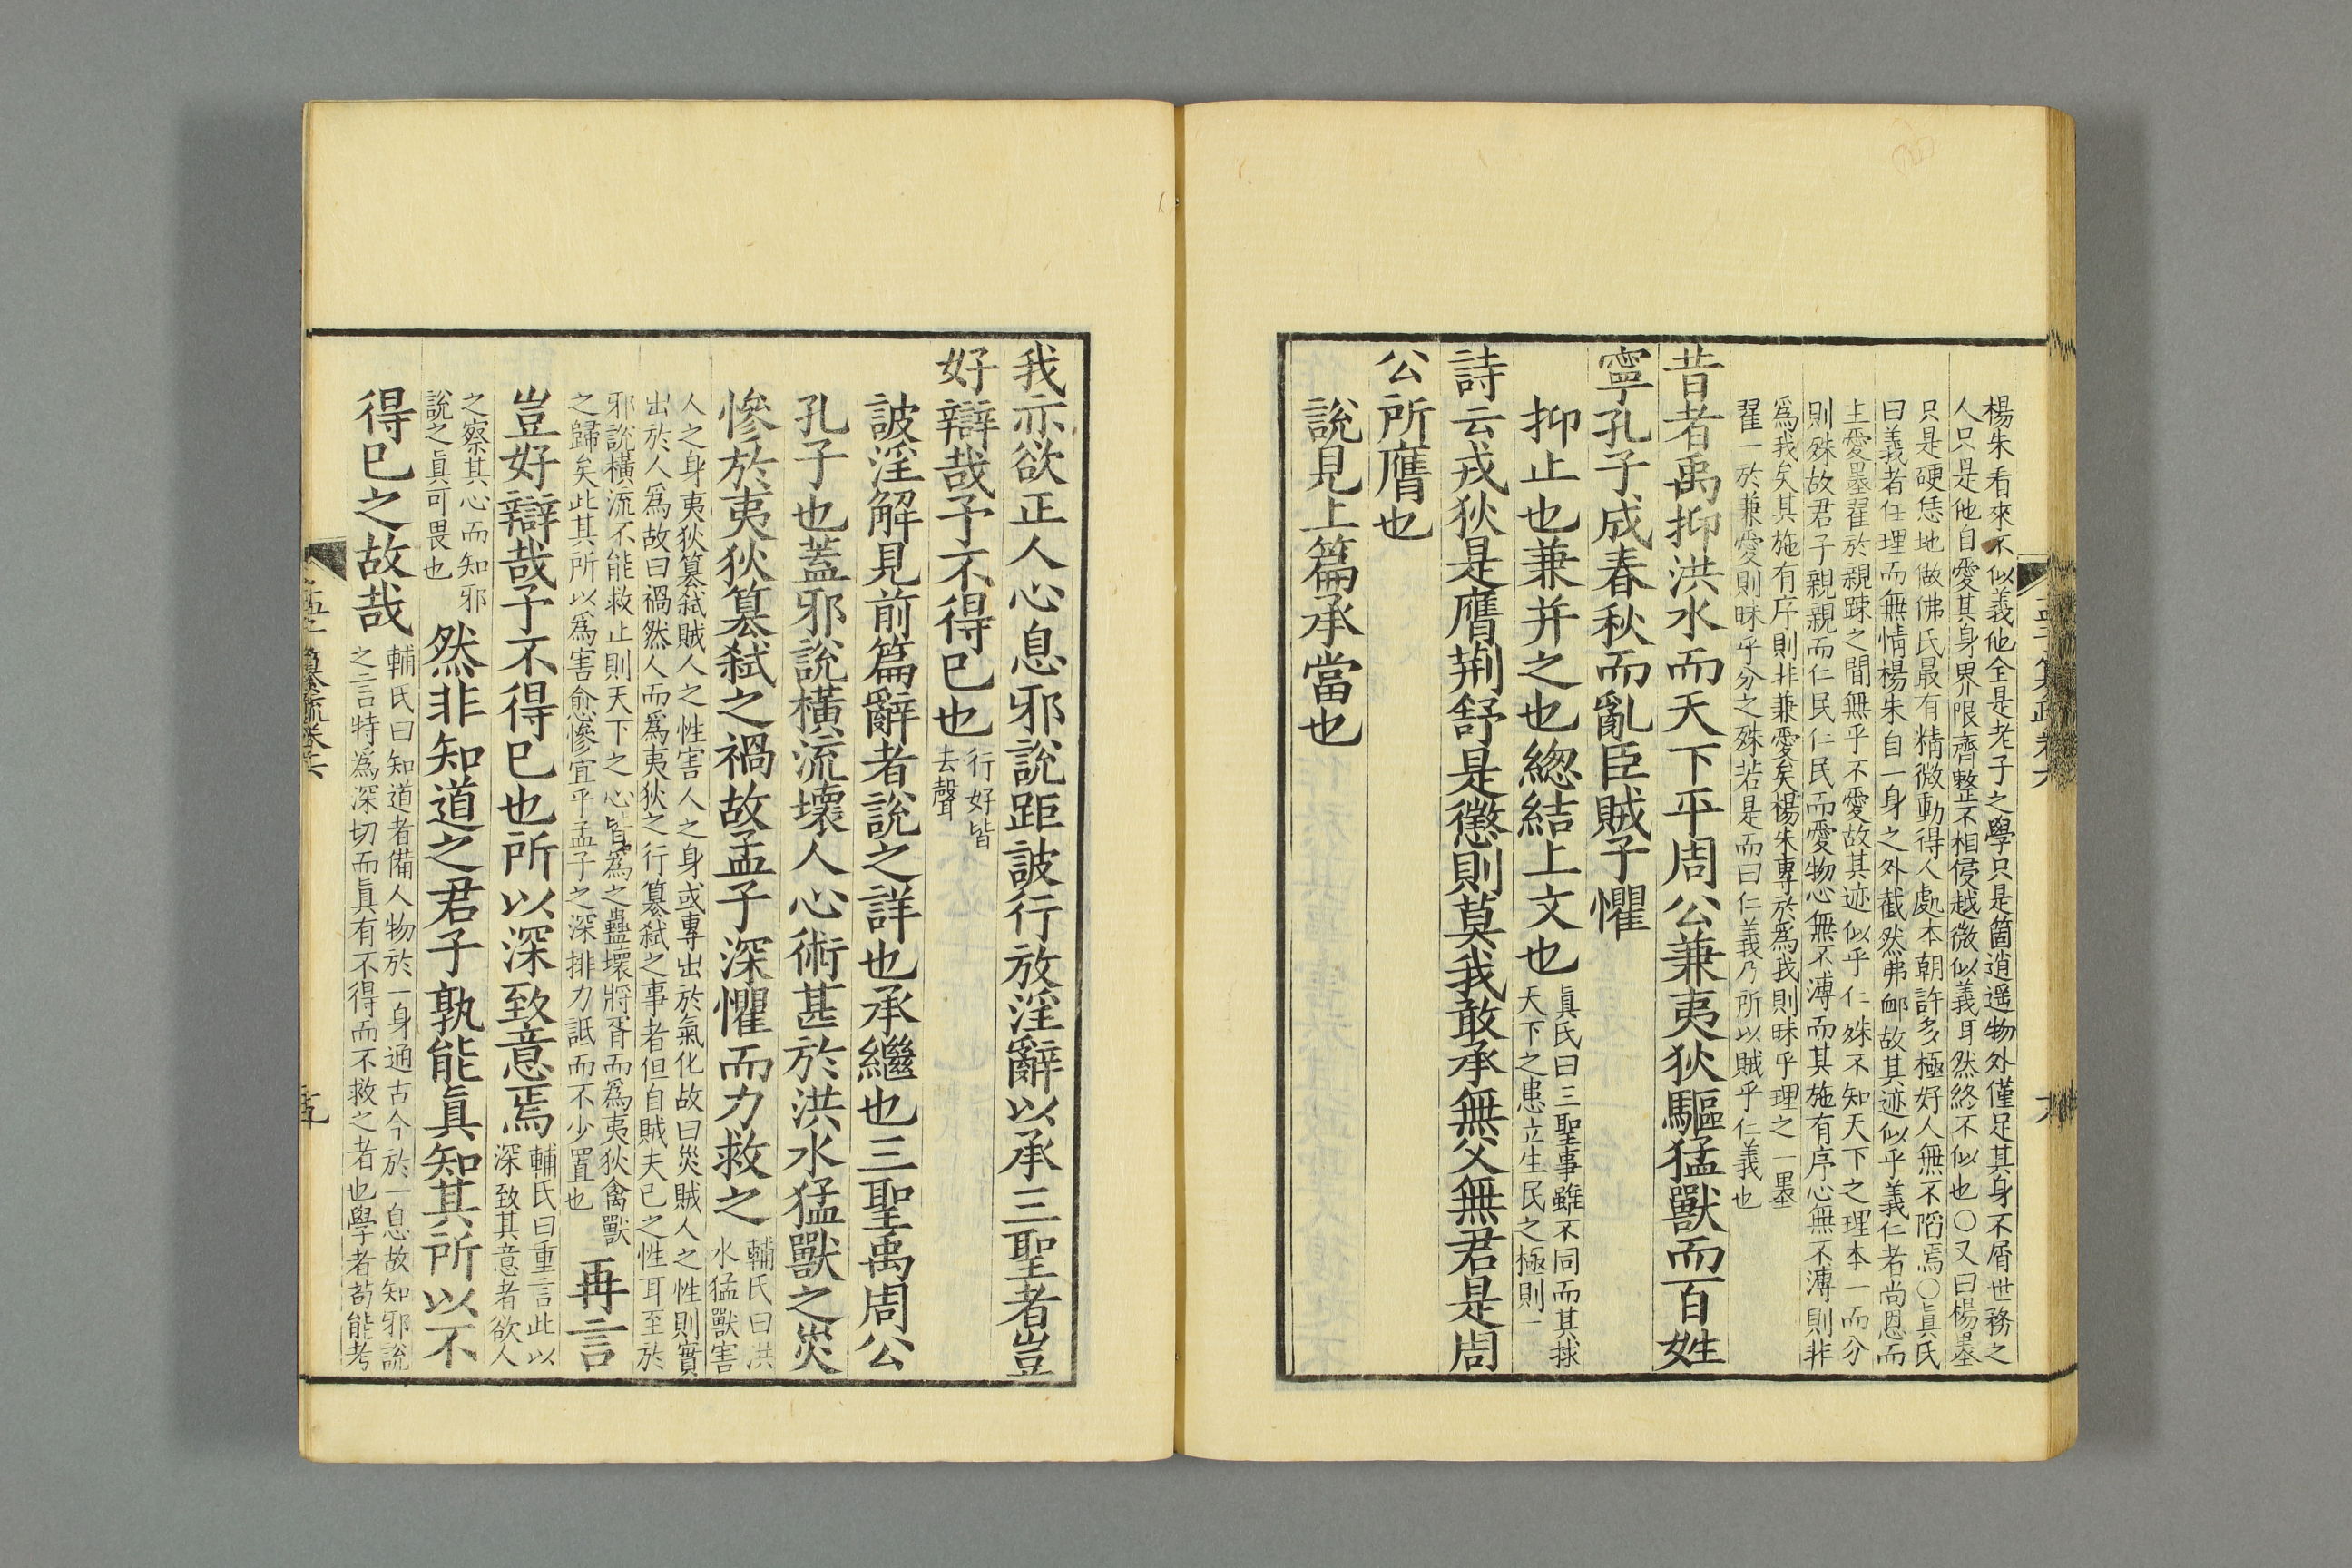 楊朱看來不似義他全是老子之學只是箇逍遥物外僅足其身不屑世務之
人只是他自愛其身界限齊整不相侵越微似義耳然終不似也〇又曰楊墨
只是硬恁地做佛氏最有精微動得人處本朝許多極好人無不陷焉〇眞氏
曰義者任理而無情楊朱自一身之外截然弗䘏故其迹似乎義仁者尚恩而
主愛墨翟於親踈之間無乎不愛故其迹似乎仁殊不知天下之理本一而分
則殊故君子親親而仁民仁民而愛物心無不溥而其施有序心無不溥則非
爲我矣其施有序則非兼愛矣楊朱專於爲我則昧乎理之一墨
翟一於兼愛則昧乎分之殊若是而曰仁義乃所以賊乎仁義也
昔者禹抑洪水而天下平周公兼夷狄驅猛獸而百姓
寧孔子成春秋而亂臣賊子懼
抑止也兼并之也緫結上文也
眞氏曰三聖事雖不同而其捄
天下之患立生民之極則一
詩云戎狄是膺荆舒是懲則莫我敢承無父無君是周
公所膺也
說見上篇承當也
我亦欲正人心息邪說距詖行放淫辭以承三聖者豈
好辯哉予不得已也
行好皆
去聲
詖淫解見前篇辭者說之詳也承繼也三聖禹周公
孔子也蓋邪說橫流壞人心術甚於洪水猛獸之災
慘於夷狄篡弑之禍故孟子深懼而力救之
輔氏曰洪
水猛獸害
人之身夷狄篡弑賊人之性害人之身或專出於氣化故曰災賊人之性則實
出於人爲故曰禍然人而爲夷狄之行篡弑之事者但自賊夫已之性耳至於
邪說橫流不能救止則天下之心皆爲之蠱壞將胥而爲夷狄禽獸
之歸矣此其所以爲害愈慘宜乎孟子之深排力詆而不少置也
再言
豈好辯哉予不得已也所以深致意焉
輔氏曰重言此以
深致其意者欲人
之察其心而知邪
說之眞可畏也
然非知道之君子孰能眞知其所以不
得已之故哉
輔氏曰知道者備人物於一身通古今於一息故知邪說
之言特爲深切而眞有不得而不救之者也學者苟能考